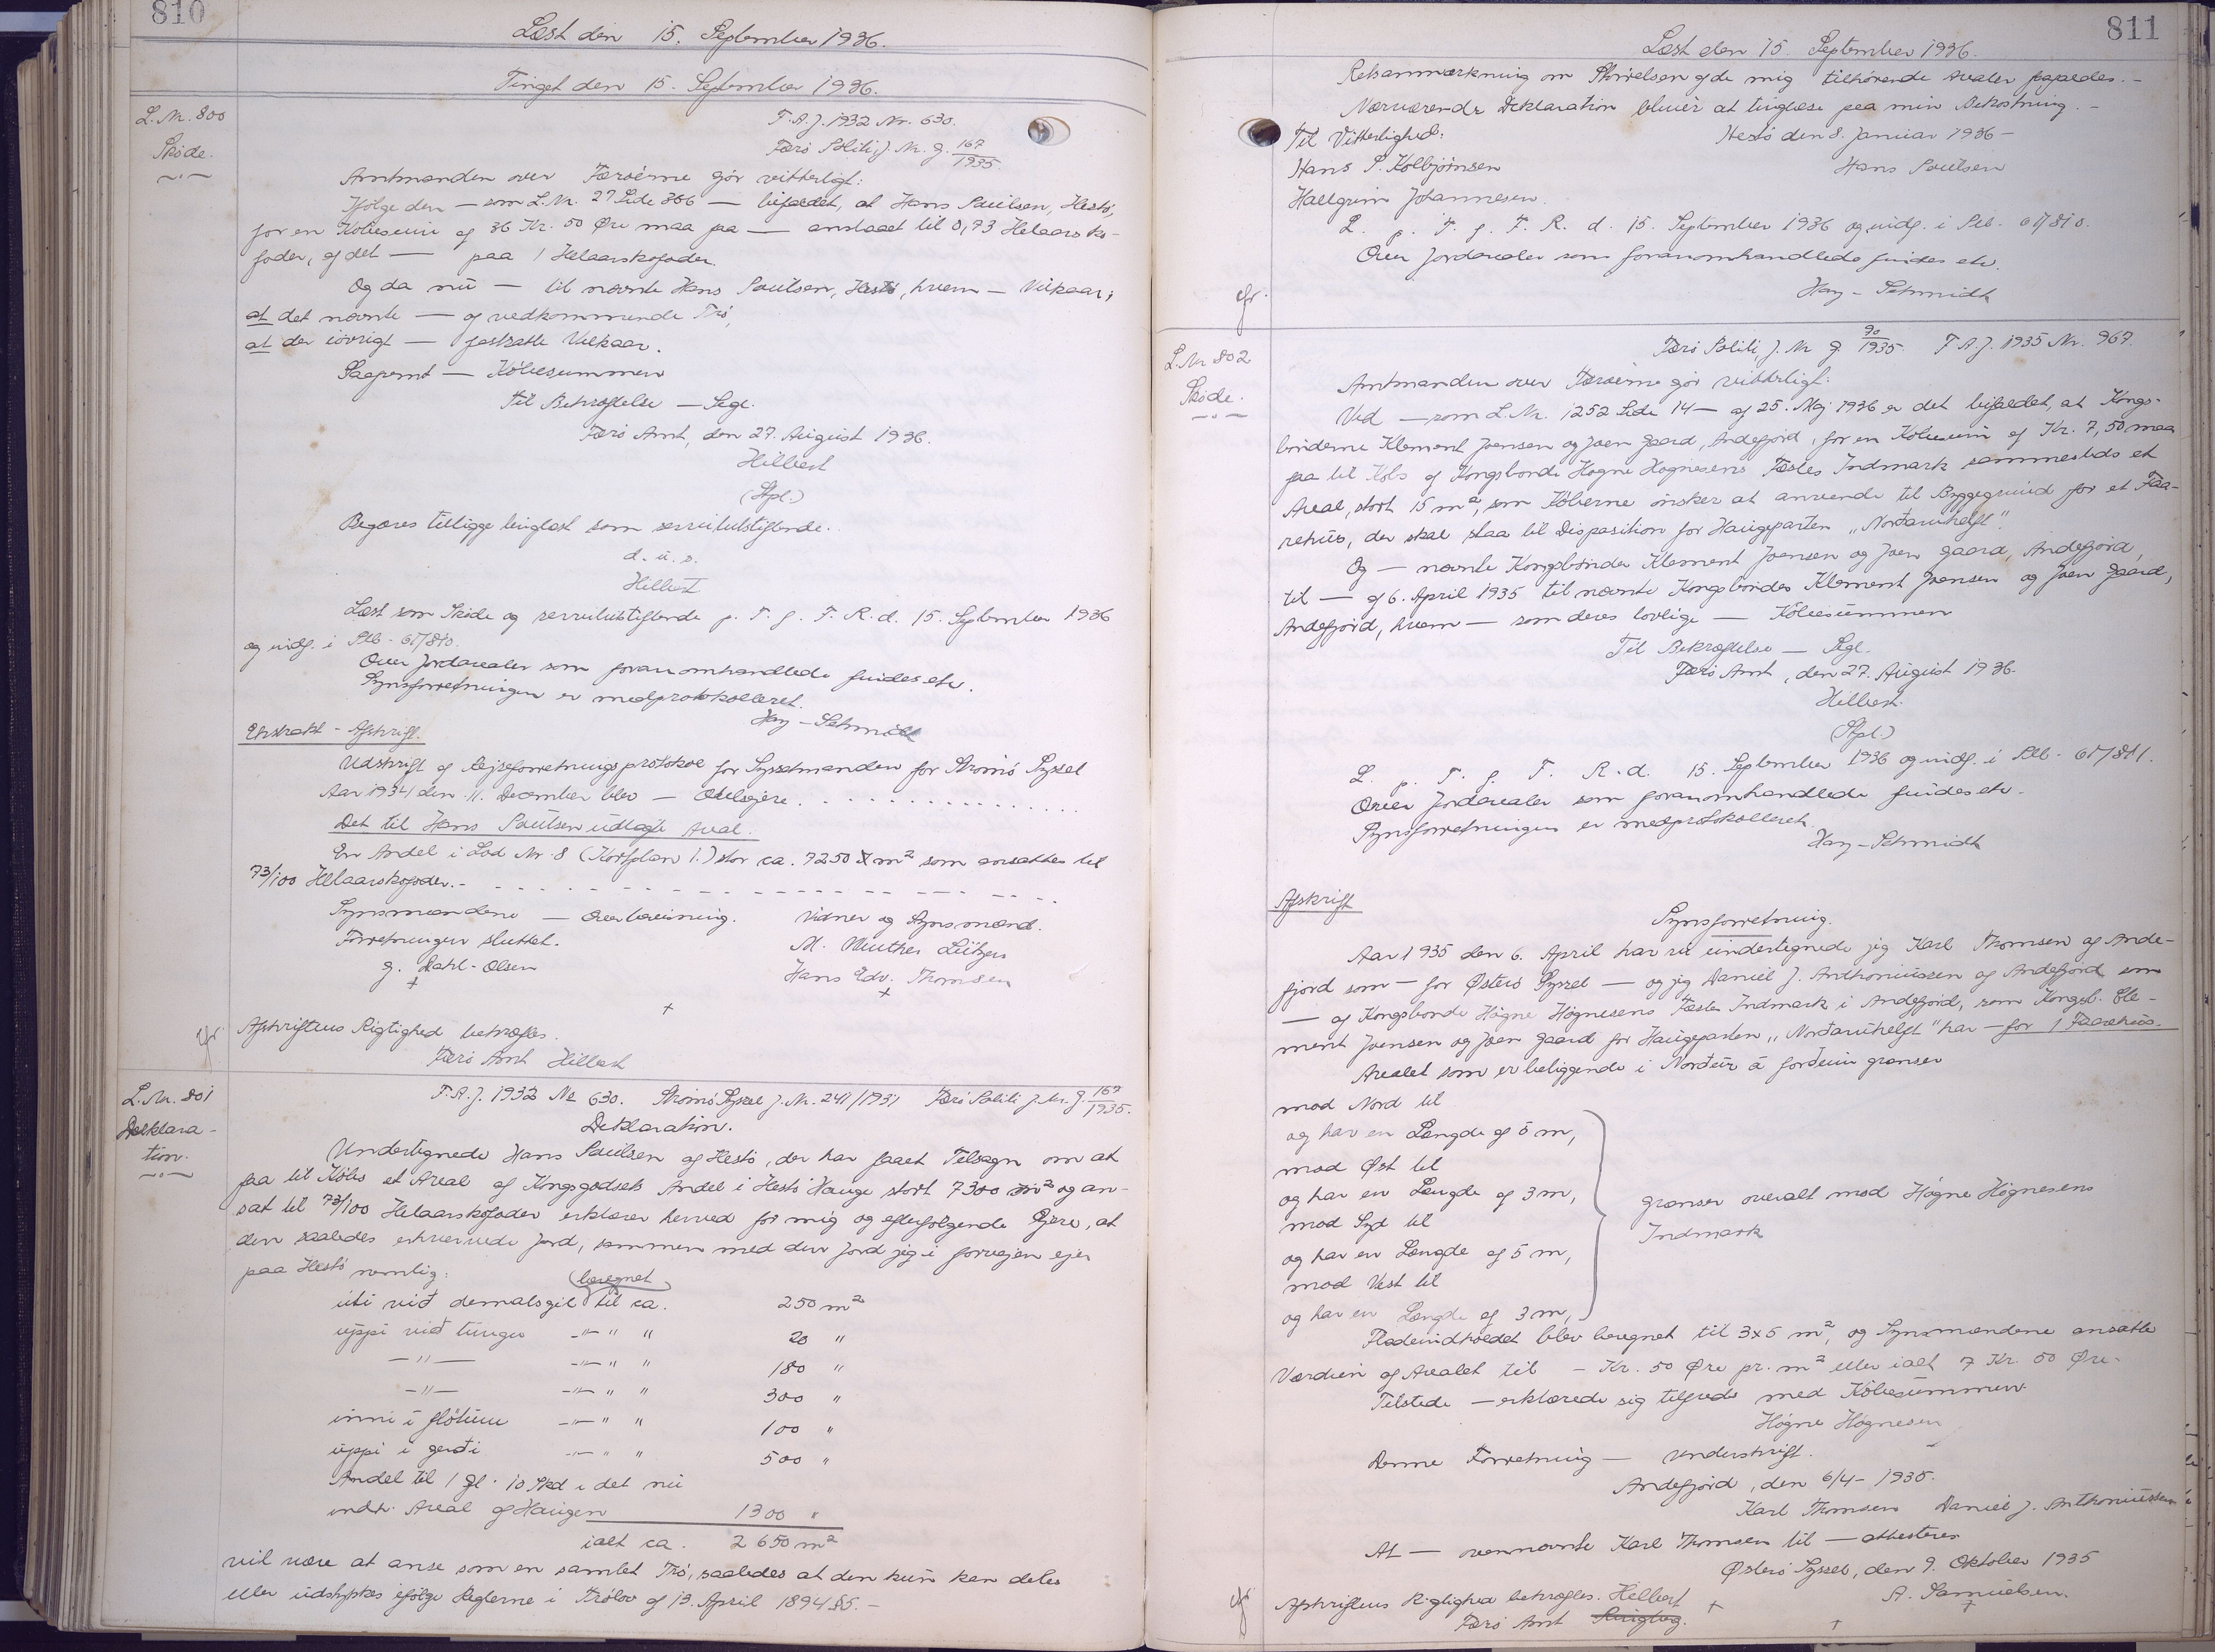 810
Læst den 15. September 1936.
Tinget den 15. September 1936.
L. Nr. 800
Skøde.
T. A. J. 1932 Nr. 630.
Færø Politi J. Nr. G. 167/1935.
Amtmanden over Færøerne gør vitterligt:
Ifølge den — som L. Nr. 27 Side 366 — bifaldet, at Hans Paulsen, Hestø,
for en Købesum af 36 Kr. 50 Øre maa faa — anslaaet til 0,73 Helaarsko-
foder, af det — paa 1 Helaarskofoder.
Og da nu — til nævnte Hans Paulsen, Hestø, hvem — Vilkaar;
at det nævnte — og vedkommende Trø,
at der iøvrigt — fastsatte Vilkaar.
Paagremt — Købesummen
Til Bekræftelse — Segl.
Færø Amt, den 27. August 1936.
Hilbert
(Stpl.)
Begæres tillige tinglæst som servitutstiftende.
d. u. s.
Hilbert
Læst som Skøde og servitutstiftende p. T. f. F. R. d. 15. September 1936
og indf. i Skb. 61/810.
Over Jordarealer som foranomhandlede findes etc.
Synsforretningen er medprotokolleret.
Hay-Schmidt
Ekstrakt-Afskrift.
Udskrift af Rejseforretningsprotokol for Sysselmanden for Strømø Syssel
Aar 1934 den 11. December blev — Odelsejere. . . . . . . . . . . . . . .
Det til Hans Paulsen udlagte Areal.
En Andel i Lod Nr. 8 (Kortplan 1.) stor ca. 7250 m² som ansattes til
73/100 Helaarskofoder. - - - - - - - - - -
Synsmændene — Overlevering. Vidner og Synsmænd.
Forretningen sluttet. M. Winther Lützen
J. Dahl-Olsen Hans Edv. Thomsen
Afskriftens Rigtighed bekræftes.
Færø Amt Hilbert
L. Nr. 801
Deklara-
tion.
T. A. J. 1932 № 630. Strømø Syssel J. Nr. 241/1931 Færø Politi J. Nr. G. 167/1935.
Deklaration.
Undertegnede Hans Paulsen af Hestø, der har faaet Tilsagn om at
faa til Købs et Areal af Kongsgodsets Andel i Hestø Hauge stort 7300 m² og an-
sat til 73/100 Helaarskofoder erklærer herved for mig og efterfølgende Ejere, at
den saaledes erhvervede Jord, sammen med den Jord jeg i forvejen ejer
paa Hestø nemlig:
(beregnet)
úti við demalsgil til ca. 250 m²
uppi við tungu -"- " " 20 "
-"- -"- " " 180 "
-"- -"- " " 300 "
inni í fløtum -"- " " 100 "
uppi í gerði -"- " " 500 "
Andel til 1 Gl. 10 Skd i det nu
indh. Areal af Haugen 1300 "
ialt ca. 2650 m²
vil være at anse som en samlet Trø, saaledes at den kun kan deles
eller udstykkes ifølge Reglerne i Trølov af 13. April 1894 §5. —
811
Læst den 15. September 1936.
Retsanmærkning om Skrivelsen af de mig tilhørende Arealer frafaldes. —
Nærværende Deklaration bliver at tinglæse paa min Bekostning. —
Til Vitterlighed: Hestø den 8. Januar 1936 —
Hans P. Kolbjørnsen Hans Paulsen
Hallgrim Johannesen.
L. p. T. f. F. R. d. 15. September 1936 og indf. i Skb. 61/810.
Over Jordarealer som foranomhandlede findes etc.
Hay-Schmidt
L. Nr. 802
Skøde.
Færø Politi J. Nr. G. 90/1935. F. A. J. 1935 Nr. 967.
Amtmanden over Færøerne gør vitterligt:
Ved — som L. Nr. 1252 Side 14 — af 25. Maj 1936 er det bifaldet, at Kongs-
bønderne Klement Joensen og Joen Gaard, Andefjord, for en Købesum af Kr. 7,50 maa
faa til Købs af Kongsbonde Høgne Høgnesens Fæstes Indmark sammesteds et
Areal, stort 15 m², som Køberne ønsker at anvende til Byggegrund for et Faa-
rehus, der skal staa til Disposition for Haugeparten „Norðaruhelft".
Og — nævnte Kongsbønder Klement Joensen og Joen Gaard, Andefjord,
til — af 6. April 1935 til nævnte Kongsbønder Klement Joensen og Joen Gaard,
Andefjord, hvem — som deres lovlige — Købesummen
Til Bekræftelse — Segl.
Færø Amt, den 27. August 1936.
Hilbert.
(Stpl.)
L. p. T. f. F. R. d. 15. September 1936 og indf. i Skb. 61/811.
Over Jordarealer som foranomhandlede findes etc.
Synsforretningen er medprotokolleret.
Hay-Schmidt
Afskrift
Synsforretning.
Aar 1935 den 6. April har vi undertegnede jeg Karl Thomsen af Ande-
fjord som — for Østerø Syssel — og jeg Daniel J. Anthoniussen af Andefjord som
— af Kongsbonde Høgne Høgnesens Fæste Indmark i Andefjord, som Kongsb. Kle-
ment Joensen og Joen Gaard for Haugeparten „Norðaruhelft" har — for 1 Faarehus.
Arealet som er beliggende i Norður á forðum grænser
mod Nord til
og har en Længde af 5 m,
mod Øst til
og har en Længde af 3 m,
mod Syd til
og har en Længde af 5 m,
mod Vest til
og har en Længde af 3 m,
grænser overalt mod Høgne Høgnesens
Indmark
Fladeindholdet blev beregnet til 3x5 m², og Synsmændene ansatte
Værdien af Arealet til - Kr. 50 Øre pr. m² eller ialt 7 Kr. 50 Øre.
Tilstede — erklærede sig tilfreds med Købesummen.
Høgne Høgnesen
Denne Forretning — Underskrift.
Andefjord, den 6/4 - 1935.
Karl Thomsen Daniel J. Anthoniussen
At — ovennævnte Karl Thomsen til — attesteres
Østerø Syssel, den 9. Oktober 1935
A. Samuelsen.
Afskriftens Rigtighed bekræftes. Hilbert
Færø Amt